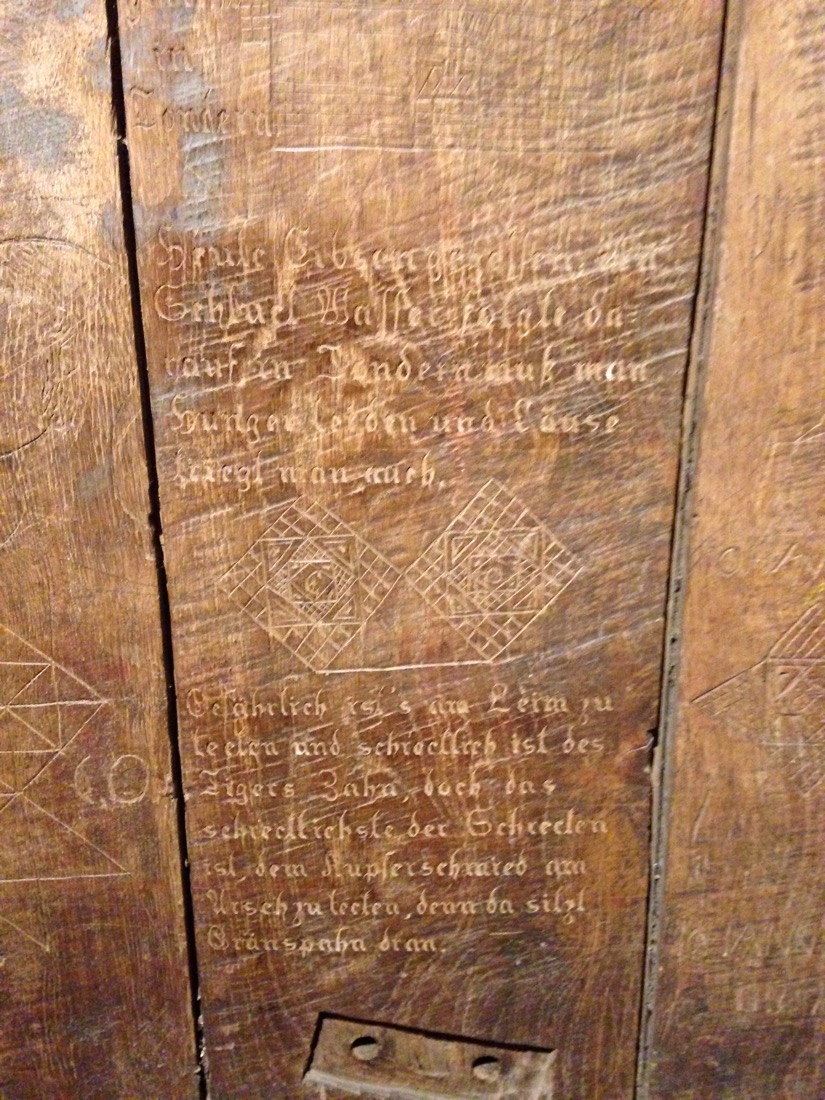 in
Tondern
Heute Erbsen gegessen, den
Schluck Wasser folgte da=
rauf, in Tondern muß man
Hunger leiden und Läuse
kriegt man auch.
Gefährlich ist's am Leim zu
lecken und schrecklich ist des
Tigers Zahn, doch das
schrecklichste der Schrecken
ist, dem Kupferschmied am
Arsch zu lecken, denn da sitzt
Gränspahn dran.